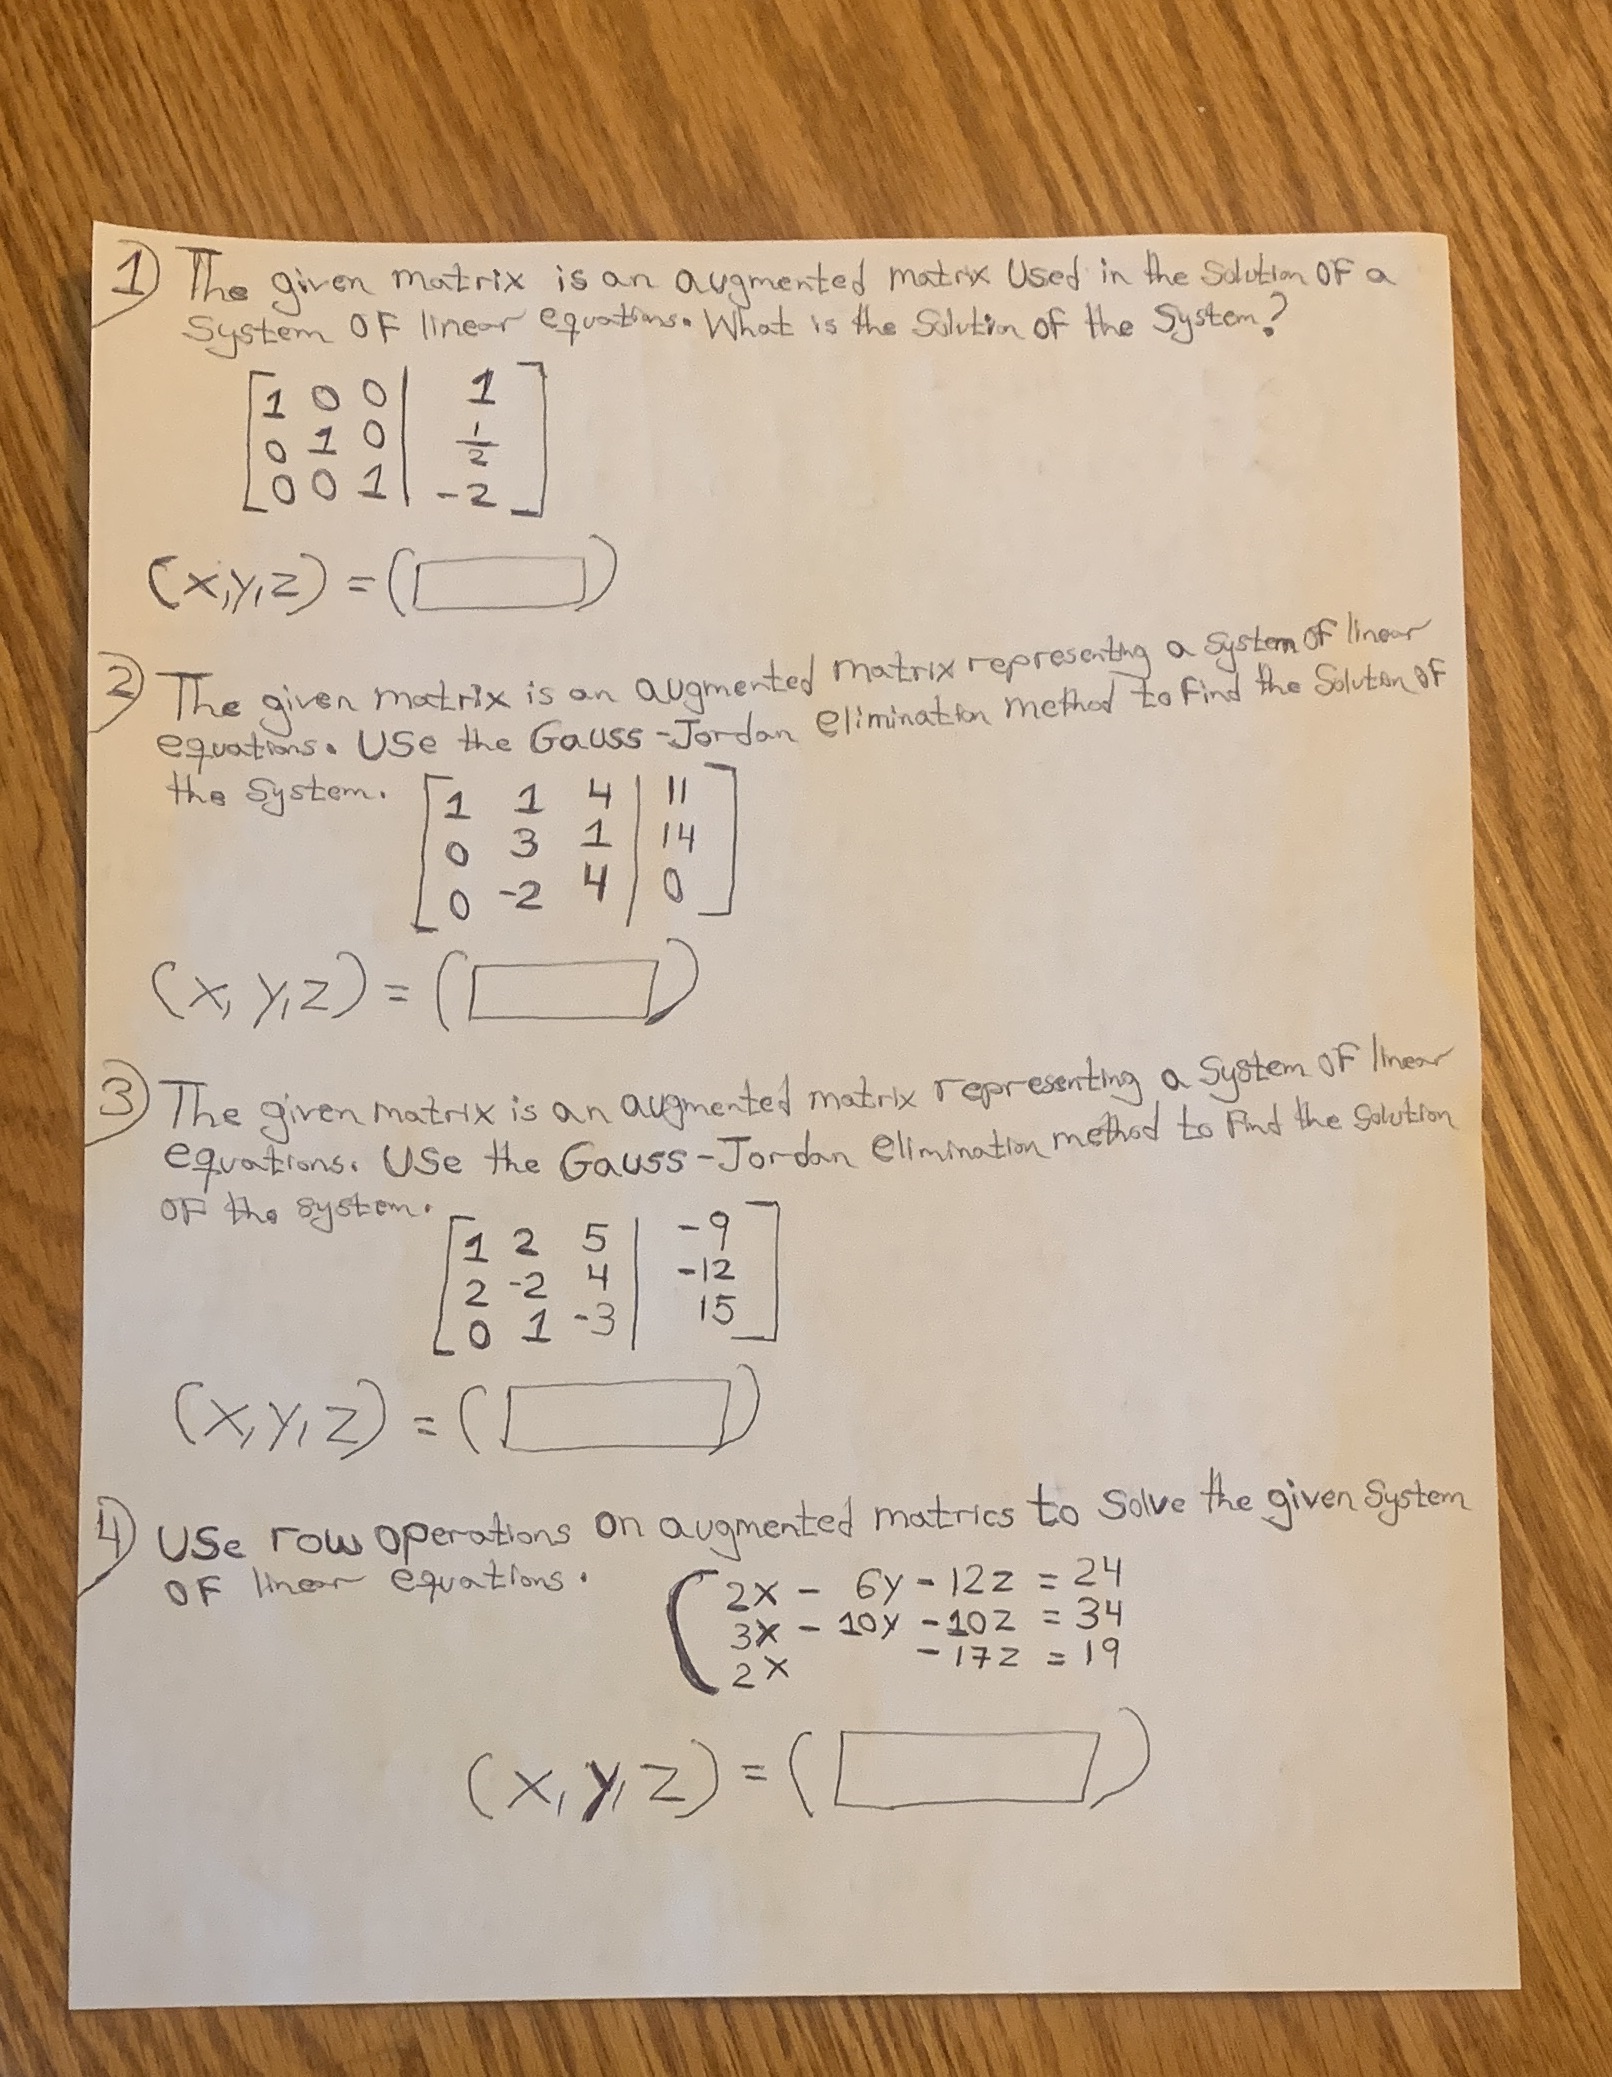 1) The given matrix is an augmented matrix Used in the Solution OF a
System OF linear equations. What is the Solution of the System?
[1 0 0 | 1]
[0 1 0 | 1/2]
[0 0 1 | -2]
(x,y,z) = ( )
2) The given matrix is an augmented matrix representing a system of linear
equations. Use the Gauss-Jordan elimination method to find the Solution of
the System.
[1 1 4 | 11]
[0 3 1 | 14]
[0 -2 4 | 0]
(x, y, z) = ( )
3) The given matrix is an augmented matrix representing a System OF linear
equations. Use the Gauss-Jordan elimination method to find the Solution
OF the system.
[1 2 5 | -9]
[2 -2 4 | -12]
[0 1 -3 | 15]
(x, y, z) = ( )
4) Use row operations on augmented matrics to Solve the given System
OF linear equations.
2x - 6y - 12z = 24
3x - 10y - 10z = 34
2x - 17z = 19
(x, y, z) = ( )